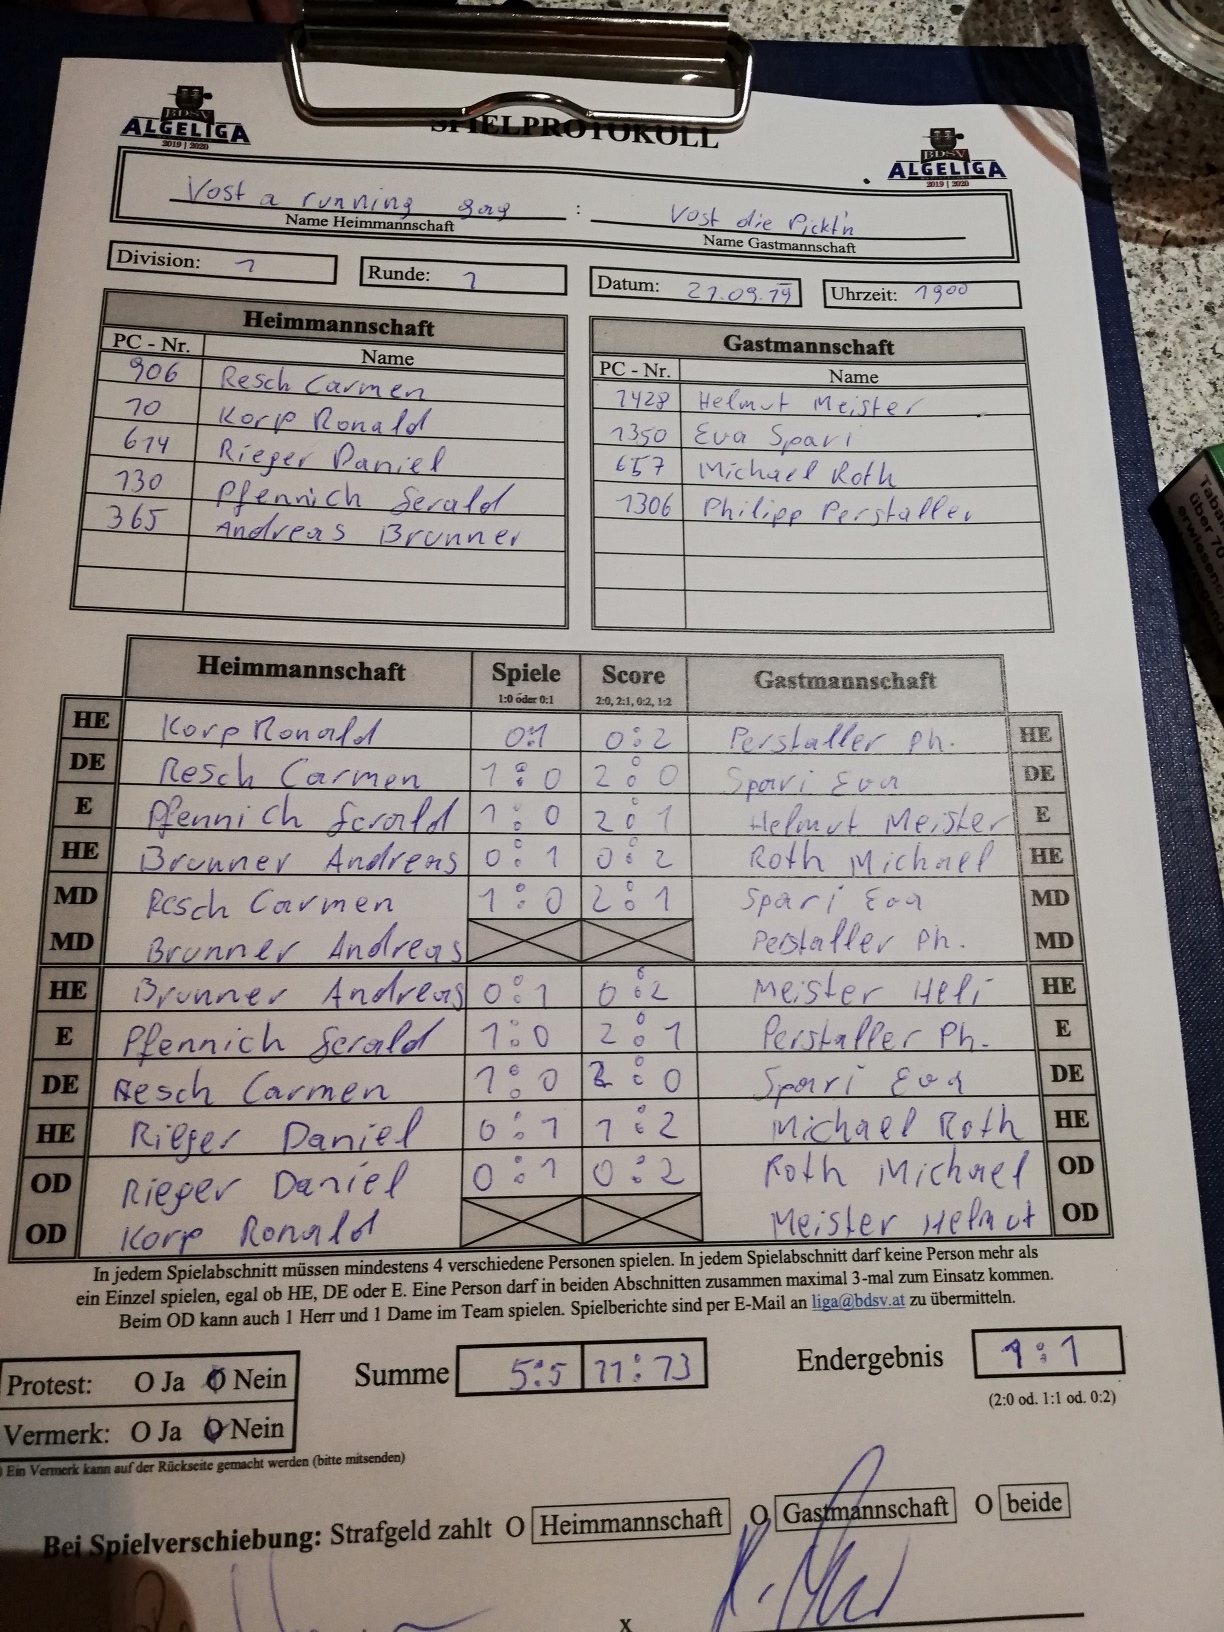 BDSV
ALGELIGA
2019 | 2020
SPIELPROTOKOLL
BDSV
ALGELIGA
2019 | 2020
Vost a running gag : Vost die Pickt'n
Name Heimmannschaft Name Gastmannschaft
Division: 1 Runde: 1 Datum: 21.09.19 Uhrzeit: 1900
Heimmannschaft Gastmannschaft
PC - Nr. Name PC - Nr. Name
906 Resch Carmen 1428 Helmut Meister
10 Korp Ronald 1350 Eva Spari
614 Rieger Daniel 657 Michael Roth
130 Pfennich Gerald 1306 Philipp Perstaller
365 Andreas Brunner
Heimmannschaft Spiele Score Gastmannschaft
1:0 oder 0:1 2:0, 2:1, 0:2, 1:2
HE Korp Ronald 0:1 0:2 Perstaller Ph. HE
DE Resch Carmen 1:0 2:0 Spari Eva DE
E Pfennich Gerald 1:0 2:1 Helmut Meister E
HE Brunner Andreas 0:1 0:2 Roth Michael HE
MD Resch Carmen 1:0 2:1 Spari Eva MD
MD Brunner Andreas Perstaller Ph. MD
HE Brunner Andreas 0:1 0:2 Meister Heli HE
E Pfennich Gerald 1:0 2:1 Perstaller Ph. E
DE Resch Carmen 1:0 2:0 Spari Eva DE
HE Rieger Daniel 0:1 1:2 Michael Roth HE
OD Rieger Daniel 0:1 0:2 Roth Michael OD
OD Korp Ronald Meister Helmut OD
In jedem Spielabschnitt müssen mindestens 4 verschiedene Personen spielen. In jedem Spielabschnitt darf keine Person mehr als
ein Einzel spielen, egal ob HE, DE oder E. Eine Person darf in beiden Abschnitten zusammen maximal 3-mal zum Einsatz kommen.
Beim OD kann auch 1 Herr und 1 Dame im Team spielen. Spielberichte sind per E-Mail an liga@bdsv.at zu übermitteln.
Protest: O Ja O Nein Summe 5:5 11:13 Endergebnis 1:1
(2:0 od. 1:1 od. 0:2)
Vermerk: O Ja O Nein
Ein Vermerk kann auf der Rückseite gemacht werden (bitte mitsenden)
Bei Spielverschiebung: Strafgeld zahlt O Heimmannschaft O Gastmannschaft O beide
x